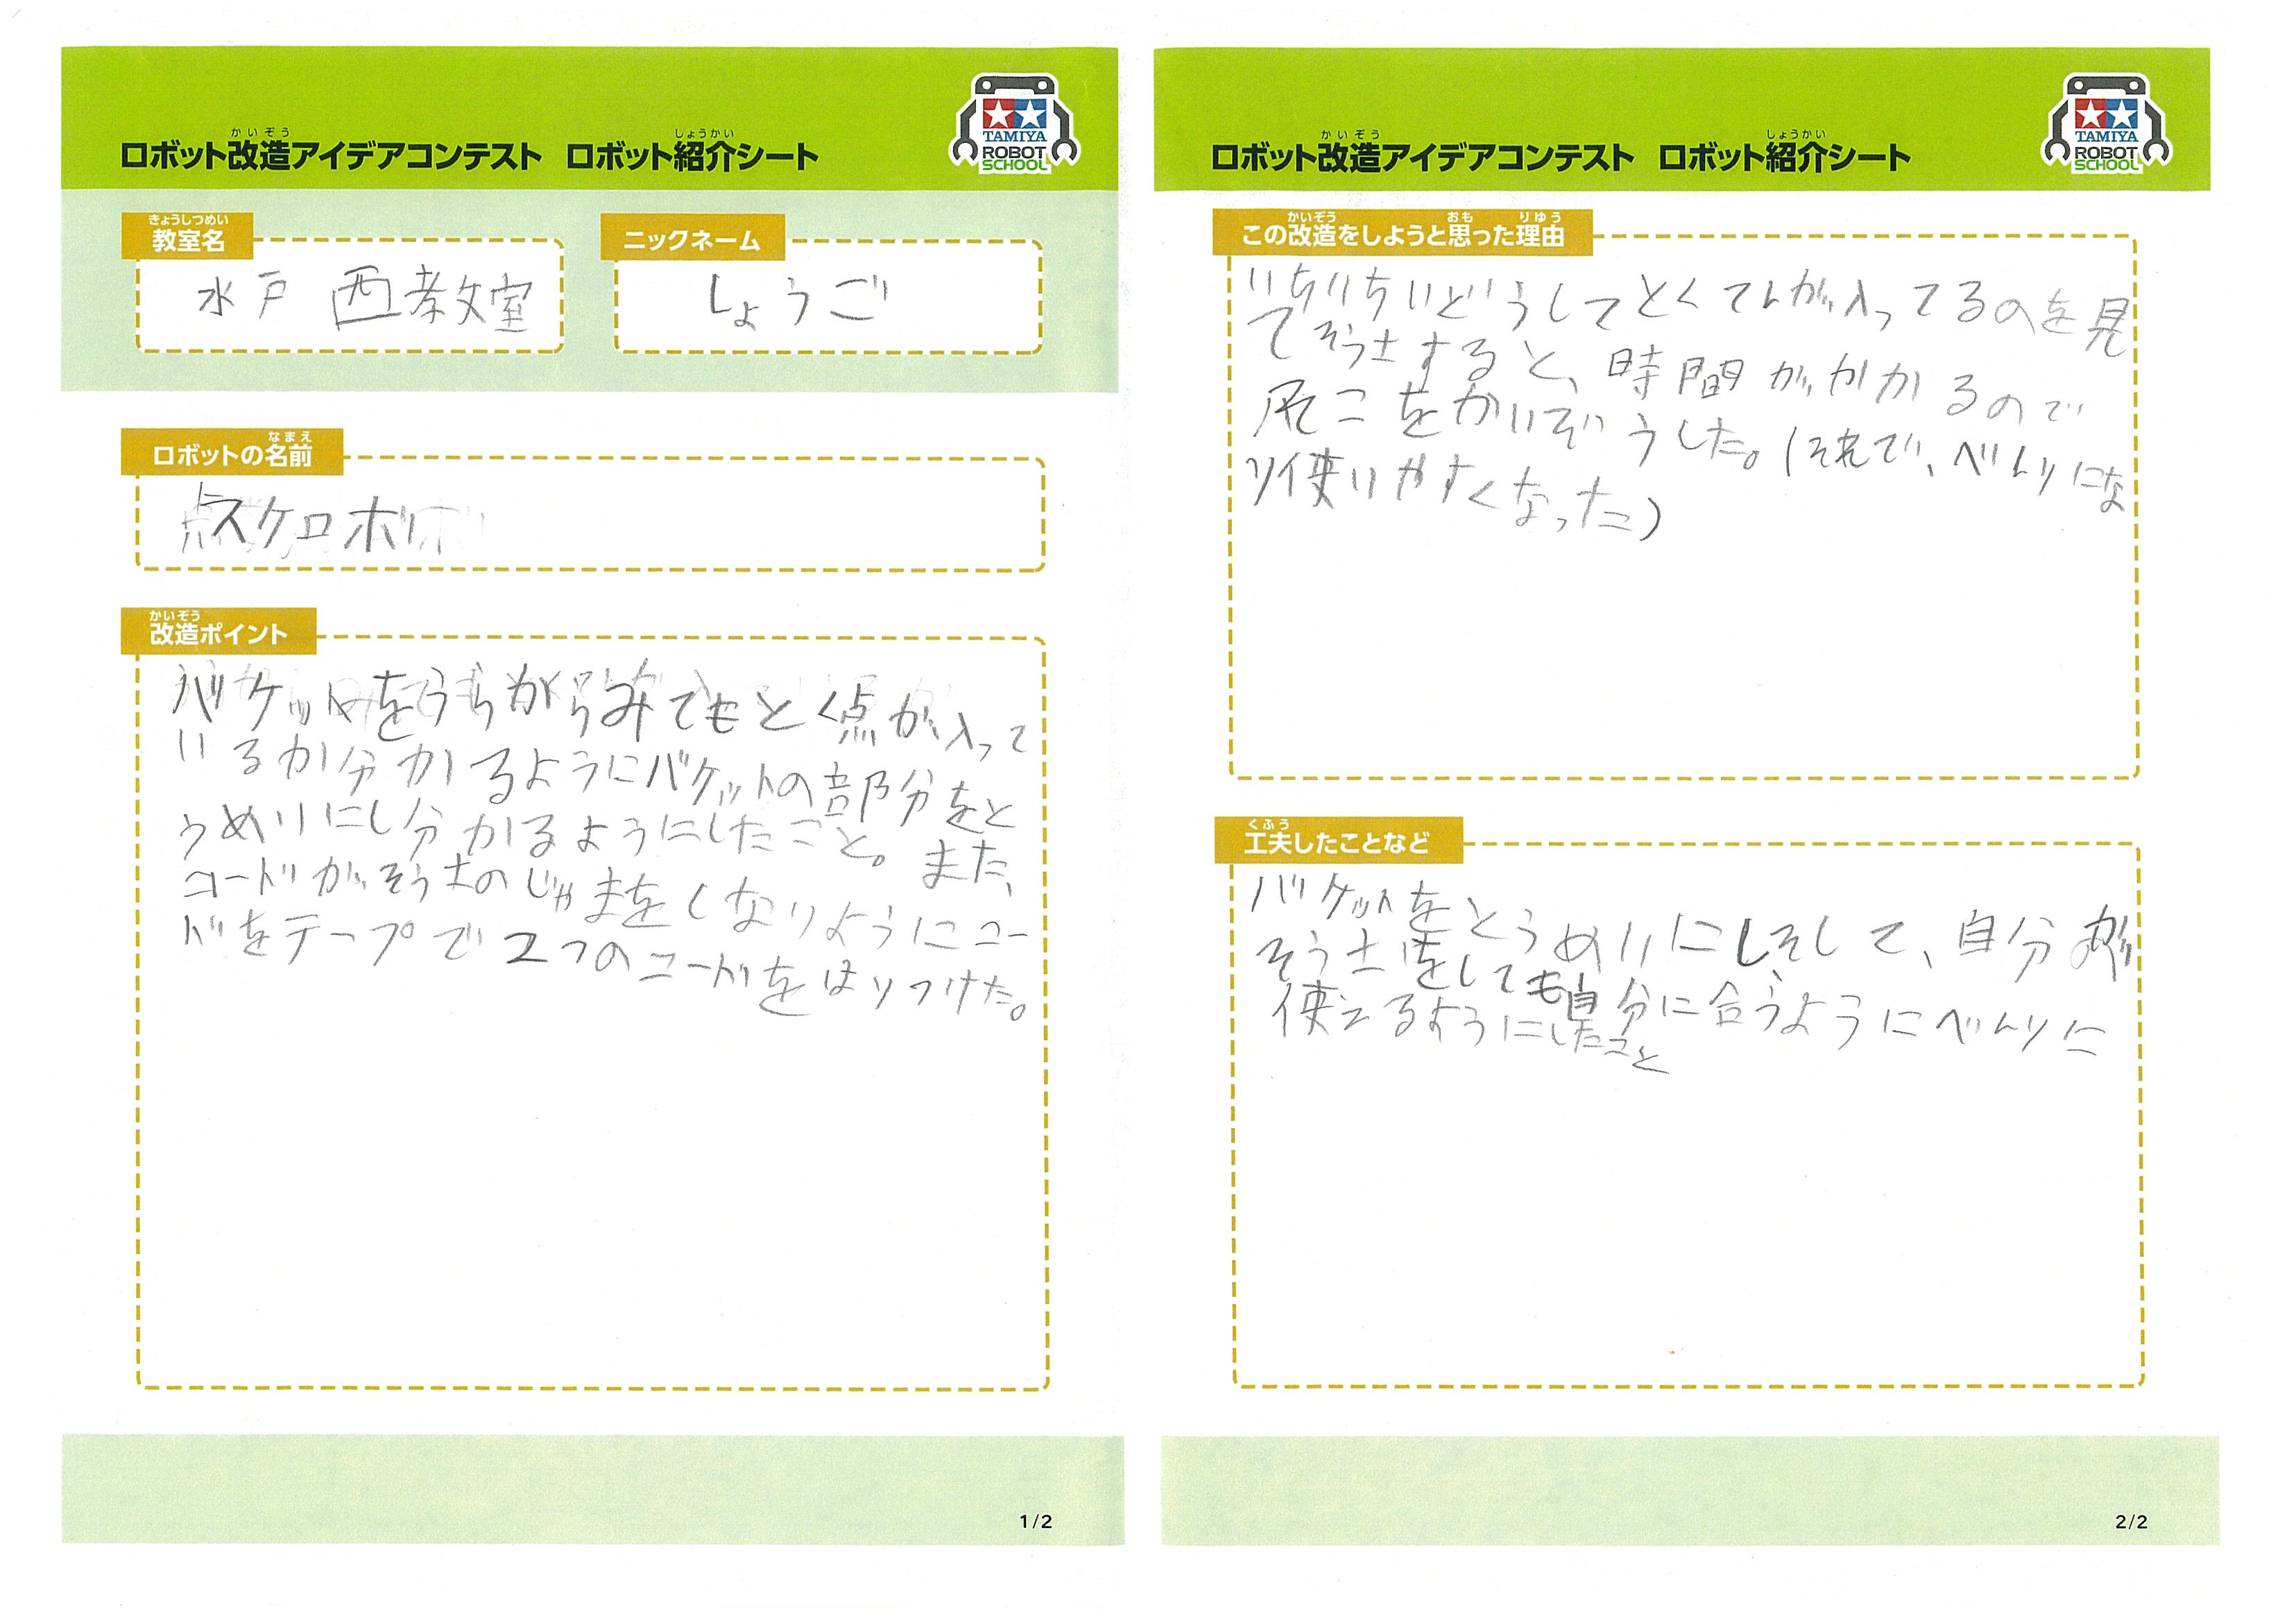 かいぞう
ロボット改造アイデアコンテスト
しょうかい
ロボット紹介シート
TAMIYA
ROBOT
SCHOOL
きょうしつめい
教室名
水戸西教室
ニックネーム
しょうご
なまえ
ロボットの名前
スケロボ
かいぞう
改造ポイント
バケットをうちがらみてもとく点が入って
いるか分かるようにバケットの部分をと
うめいにし分かるようにしたこと。また、
コードがそう士のじゃまをしないようにコー
ドをテープで2つのコードをはりつけた。
1/2
かいぞう
ロボット改造アイデアコンテスト
しょうかい
ロボット紹介シート
TAMIYA
ROBOT
SCHOOL
かいぞう おも りゆう
この改造をしようと思った理由
いちいちいどうしてとくてんが入ってるのを見
てそう士すると、時間がかかるので
こをかいぞうした。(それで、べんりにな
り使いやすくなった)
くふう
工夫したことなど
バケットをとうめいにしそして、自分が
そう士をしても自分に合うようにべんりに
使えるようにしたこと
2/2